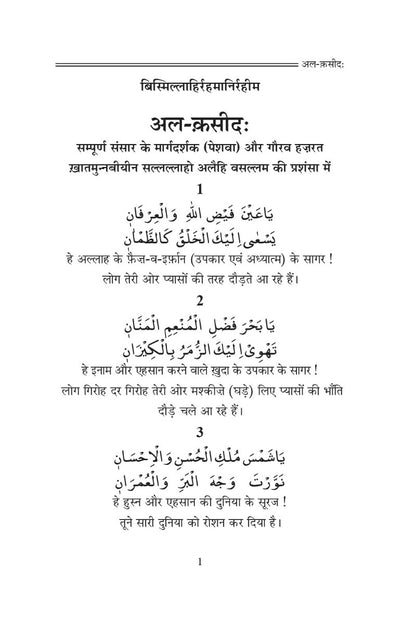 अल-क़सीदः
बिस्मिल्लाहिर्रहमानिर्रहीम
अल-क़सीदः
सम्पूर्ण संसार के मार्गदर्शक (पेशवा) और गौरव हज़रत
ख़ातमुन्नबीयीन सल्लल्लाहो अलैहि वसल्लम की प्रशंसा में
1
يَا عَيْنَ فَيْضِ اللهِ وَالْعِرْفَانِ
يَسْعٰى اِلَيْكَ الْخَلْقُ كَالظَّمْاٰنِ
हे अल्लाह के फ़ैज़-व-इर्फ़ान (उपकार एवं अध्यात्म) के सागर !
लोग तेरी ओर प्यासों की तरह दौड़ते आ रहे हैं।
2
يَا بَحْرَ فَضْلِ الْمُنْعِمِ الْمَنَّانِ
تَهْوِيْ اِلَيْكَ الزُّمَرُ بِالْكِيْزَانِ
हे इनाम और एहसान करने वाले ख़ुदा के उपकार के सागर !
लोग गिरोह दर गिरोह तेरी ओर मश्कीज़े (घड़े) लिए प्यासों की भाँति
दौड़े चले आ रहे हैं।
3
يَا شَمْسَ مُلْكِ الْحُسْنِ وَالْاِحْسَانِ
نَوَّرْتَ وَجْهَ الْبَرِّ وَالْعُمْرَانِ
हे हुस्न और एहसान की दुनिया के सूरज !
तूने सारी दुनिया को रोशन कर दिया है।
1